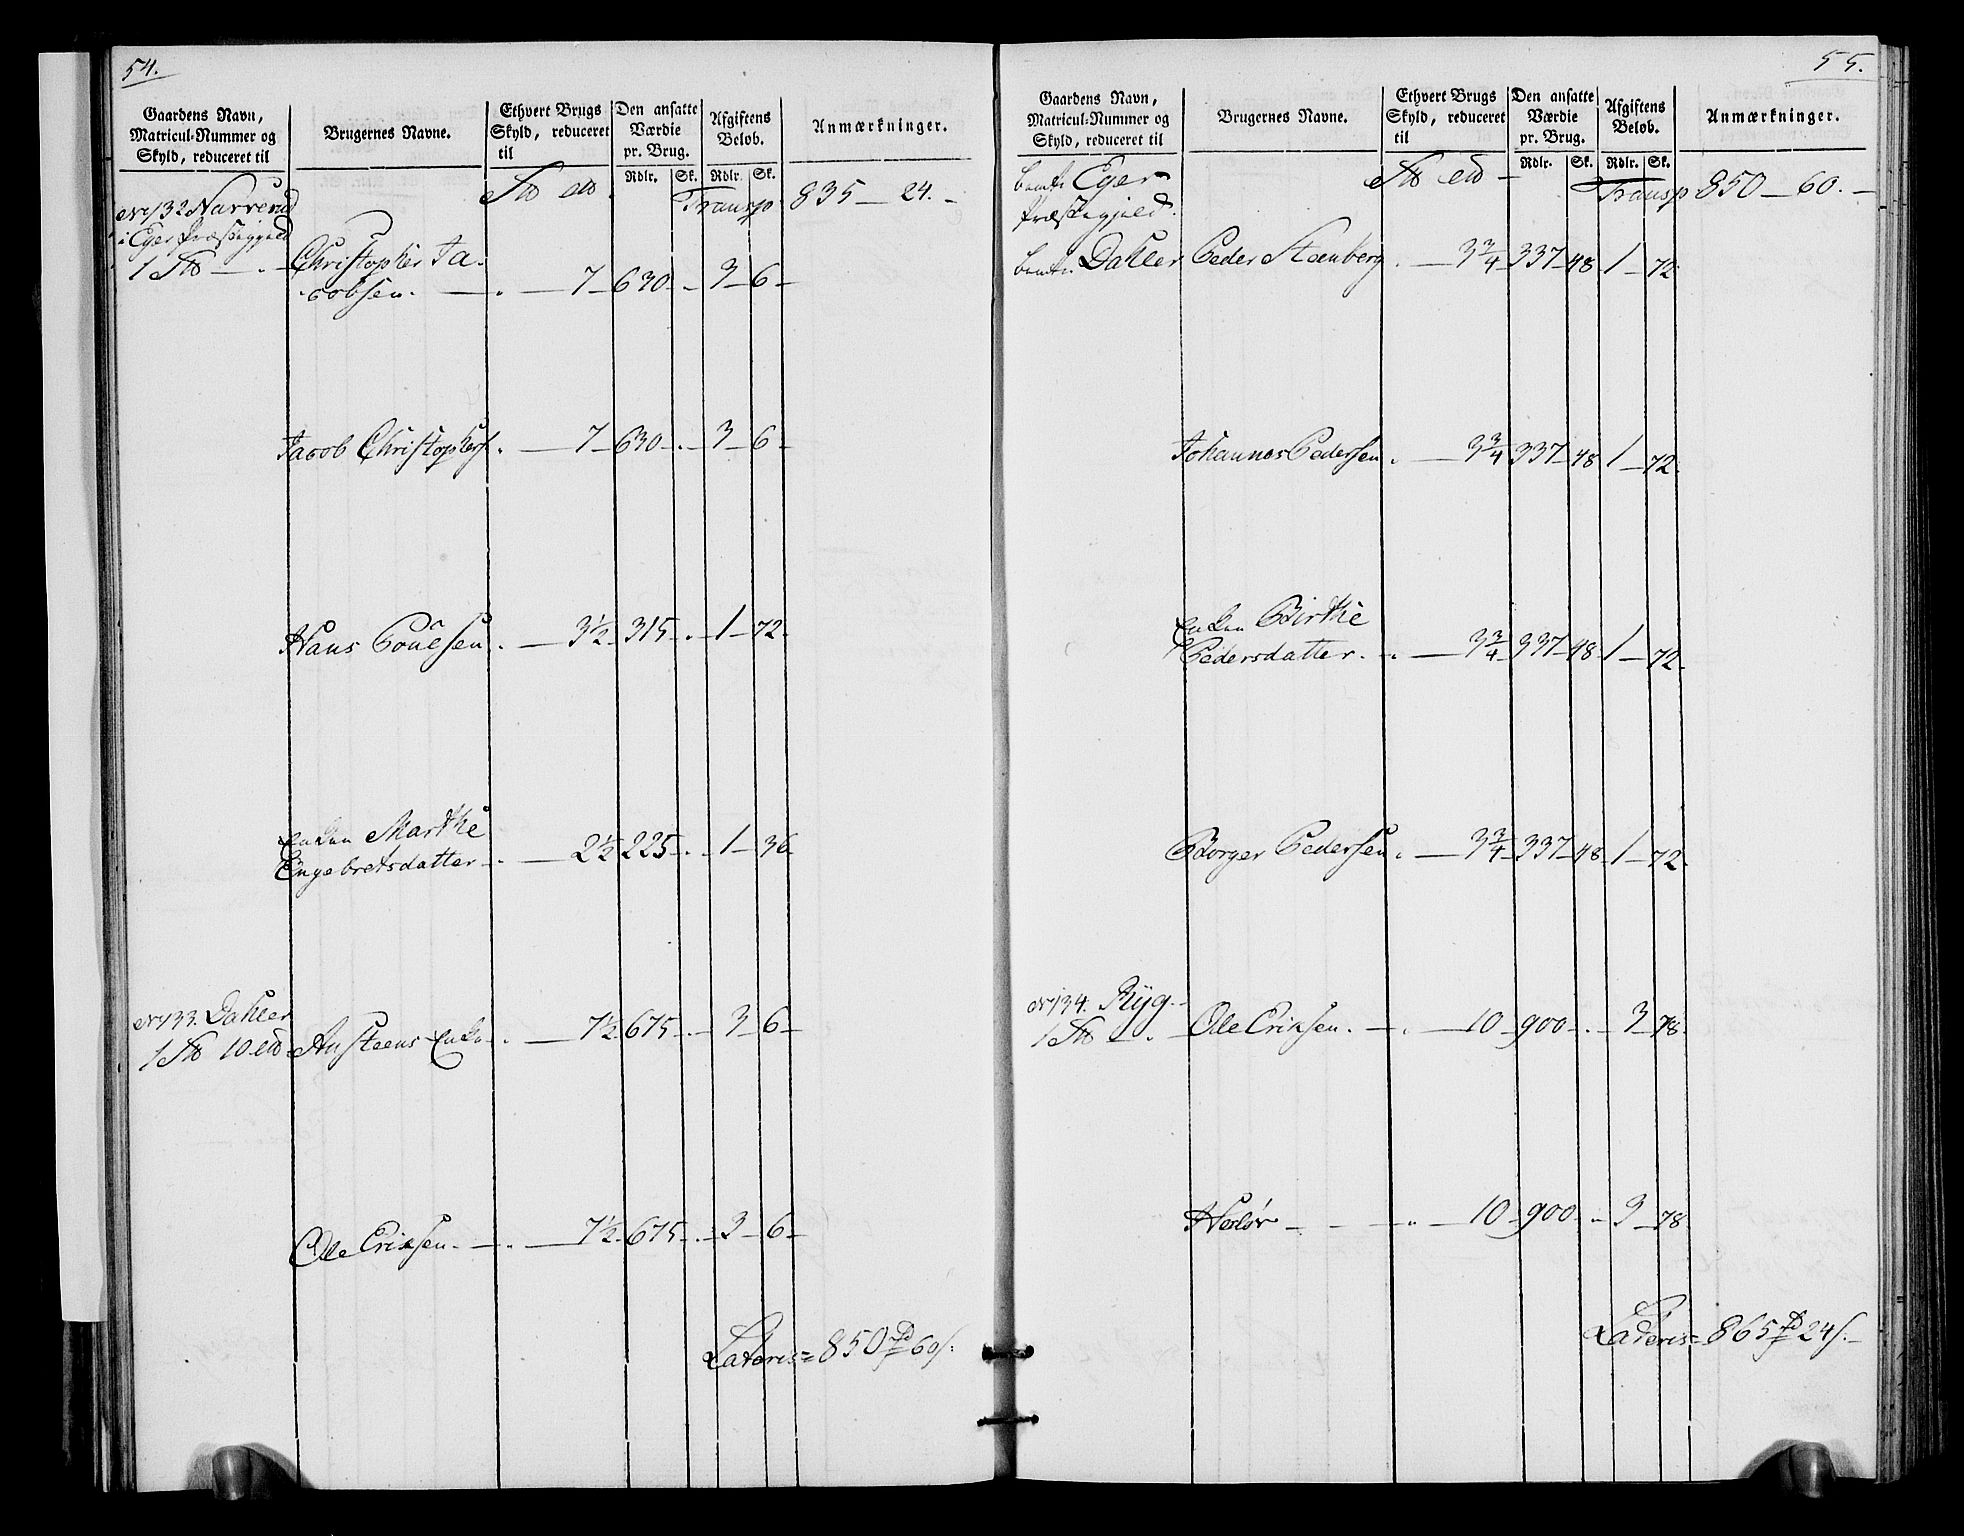 54.
Gaardens Navn, Matricul-Nummer og Skyld, reduceret til
Brugernes Navne.
Ethvert Brugs Skyld, reduceret til
Den ansatte Værdie pr. Brug.
Afgiftens Beløb.
Anmærkninger.
Rdlr. Sk. Rdlr. Sk.
Transp 835 — 24. —
No 132 Narverud
i Eger Præstegjeld
1 — Christopher Ja-
cobsen. — 7 — 630 — 3 — 6 —
Jacob Christophers. — 7 — 630 — 3 — 6 —
Hans Poulsen. — 3½ 315 — 1 — 72.
Enken Marthe
Engebretsdatter — 2½ 225 — 1 — 36
No 133. Dahler
1 10 Ansteens Enke — 7½ 675 — 3 — 6 —
Ole Eriksen. — 7½ 675 — 3 — 6 —
Lateris = 850 60
55.
Gaardens Navn, Matricul-Nummer og Skyld, reduceret til
Brugernes Navne.
Ethvert Brugs Skyld, reduceret til
Den ansatte Værdie pr. Brug.
Afgiftens Beløb.
Anmærkninger.
Rdlr. Sk. Rdlr. Sk.
Eger
Præstegjeld.
Transp 850 — 60. —
Dahler Peder Steenberg — 3¾ 337 — 48 1 — 72
Johannes Pedersen. — 3¾ 337 — 48 1 — 72
Enken Birthe
Pedersdatter. — 3¾ 337 — 48 1 — 72
Borger Pedersen — 3¾ 337 — 48 1 — 72
No 134. Ryg
1 — Ole Eriksen. — 10 — 900 — 3 — 78
— 10 — 900 — 3 — 78
Lateris = 865 24